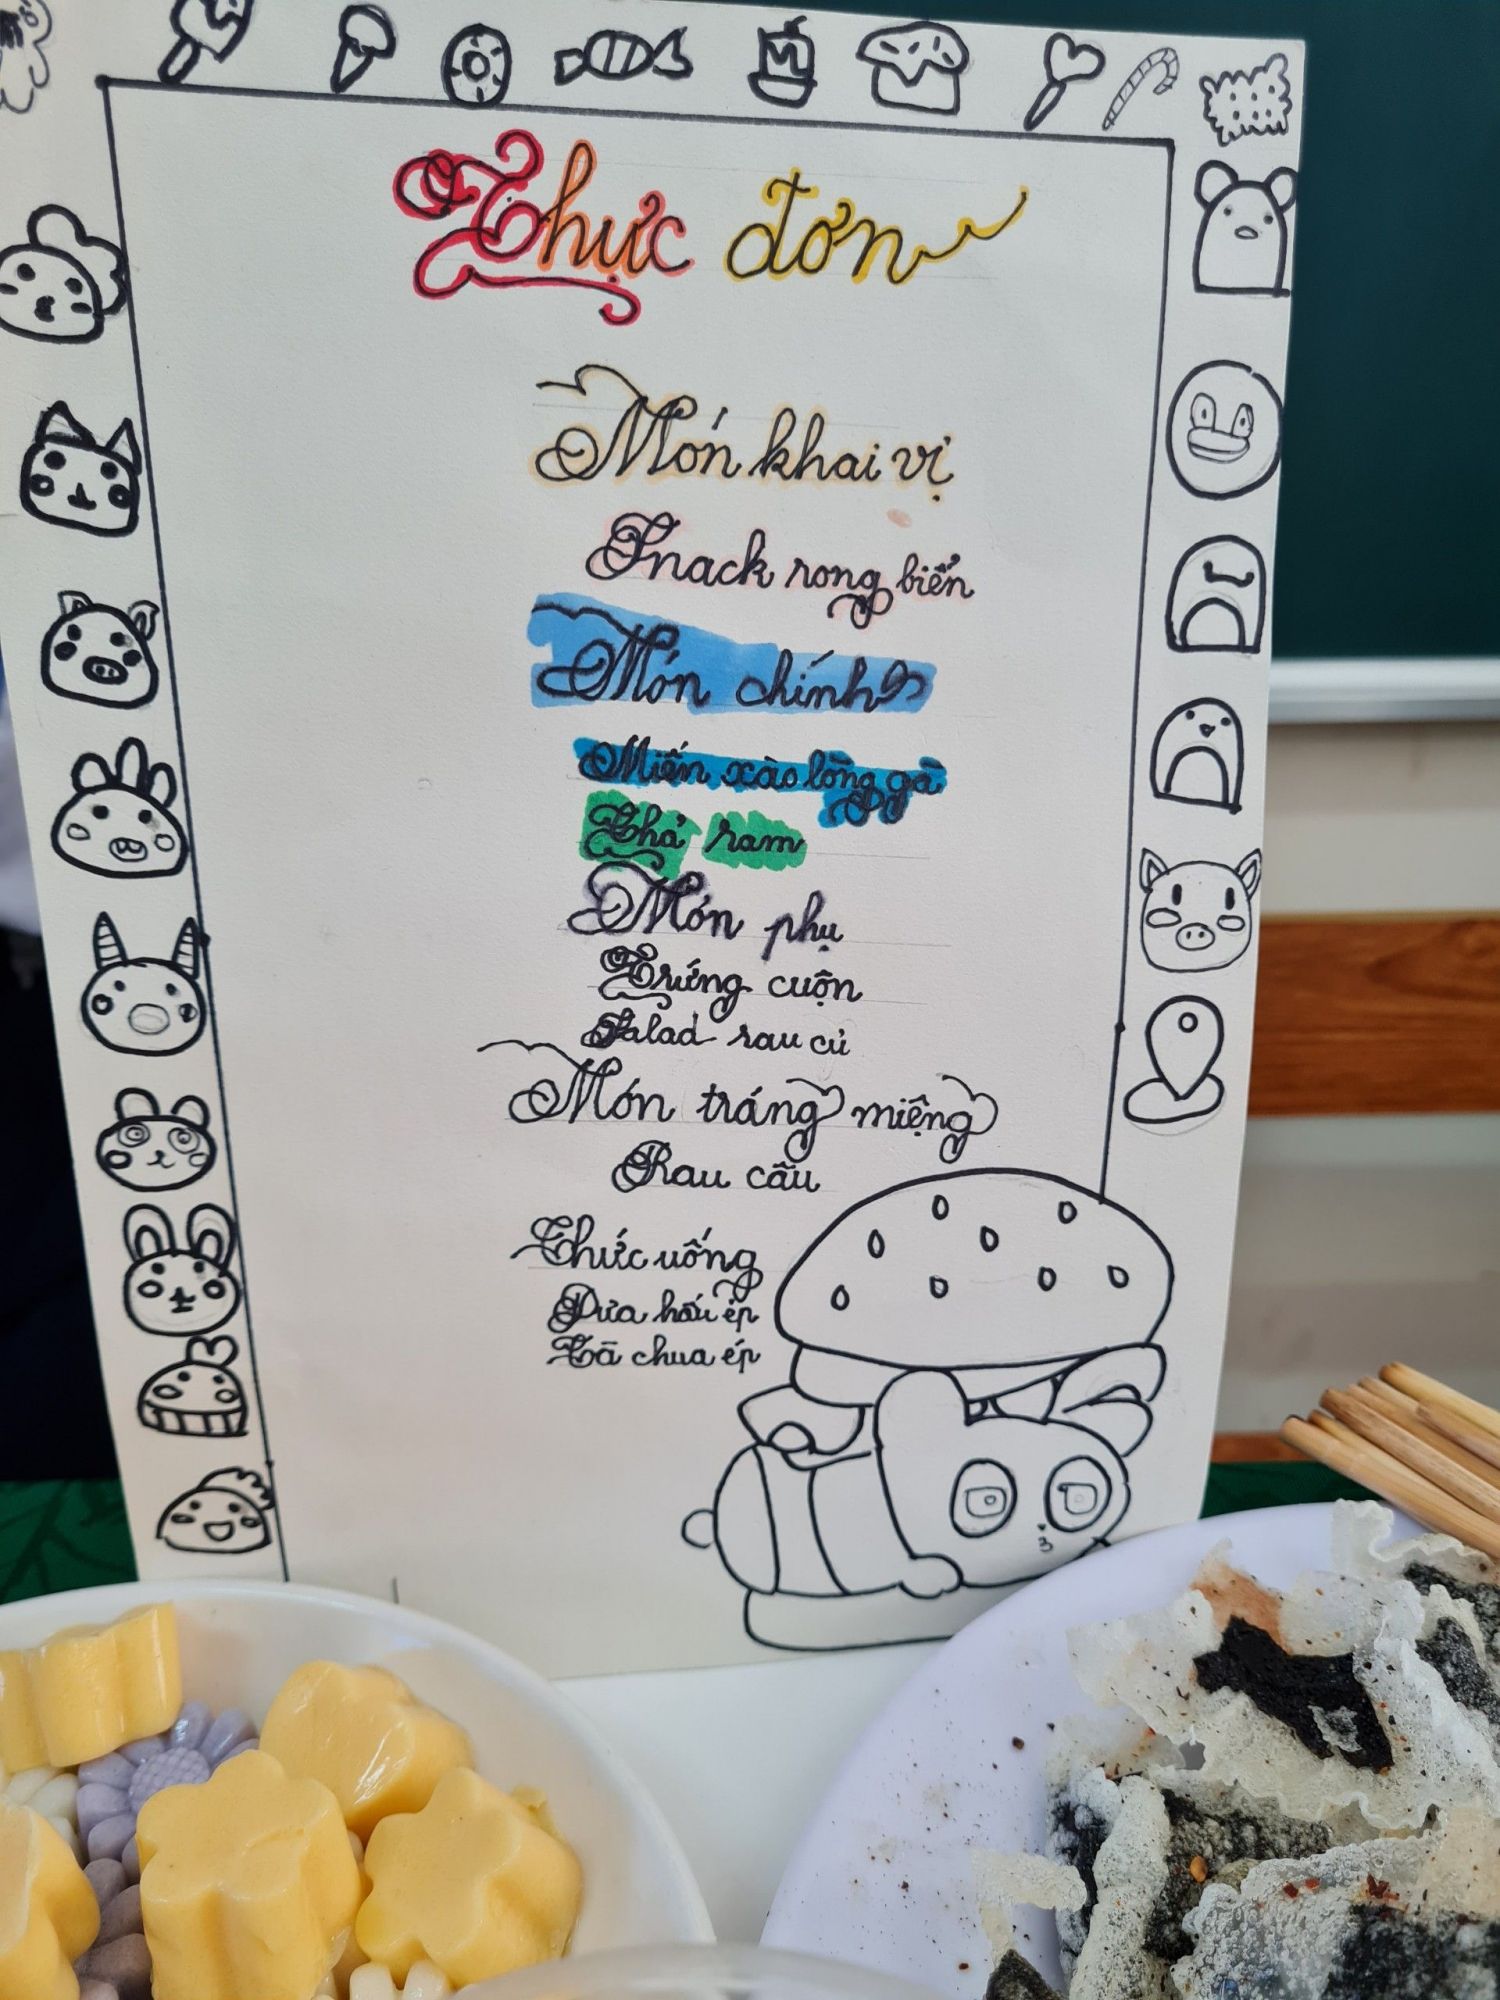 Thực đơn
Món khai vị
Snack rong biển
Món chính
Miến xào lòng gà
Chả ram
Món phụ
Trứng cuộn
Salad rau củ
Món tráng miệng
Rau câu
Thức uống
Dưa hấu ép
Cà chua ép